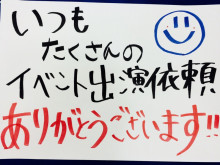 いつも
たくさんの
イベント出演依頼
ありがとうございます!!